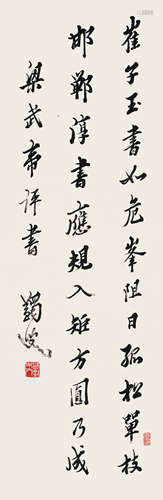 崔子玉書如危峯阻日孤松單枝
邯鄲淳書應規入矩方圓乃成
梁武帝評書